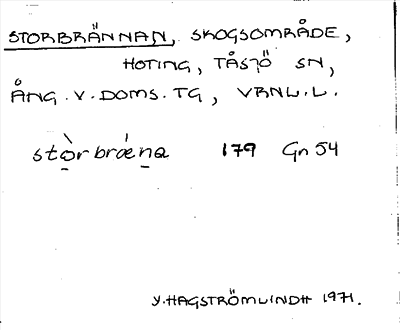 STORBRÄNNAN, SKOGSOMRÅDE,
HOTING, TÅSJÖ SN,
ÅNG. V. DOMS. TG, VRNL. L.
stòrbræ̀na 179 Gn 54
Y. HAGSTRÖM LINDH 1971.